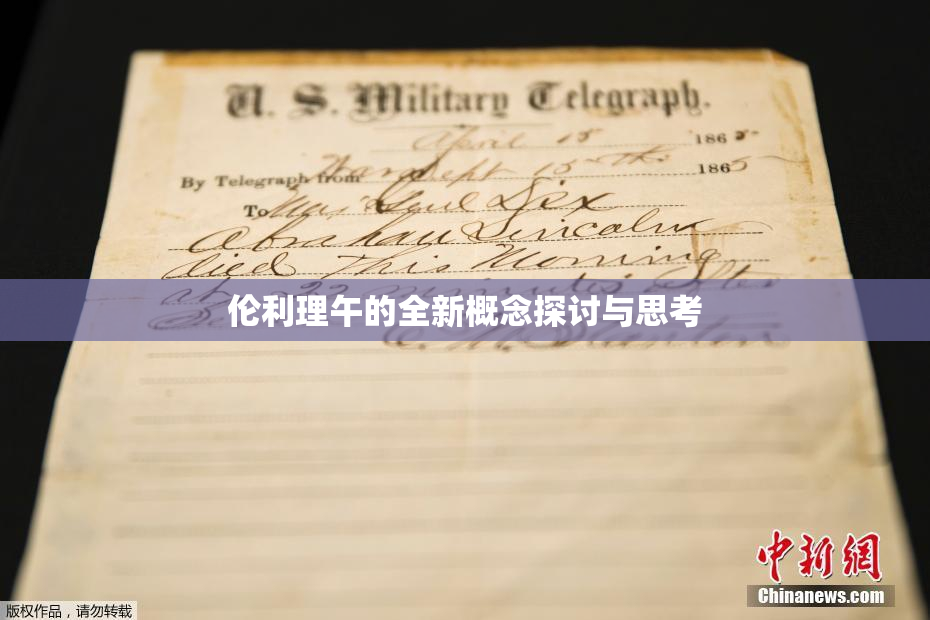 U. S. Military Telegraph.
April 15 1865
By Telegraph from War Dept 15th 1865
To Maj Genl Dix
Abraham Lincoln
died This Morning
at 22 minutes after
伦利理午的全新概念探讨与思考
E. M. Stanton
中新网
Chinanews.com
版权作品，请勿转载